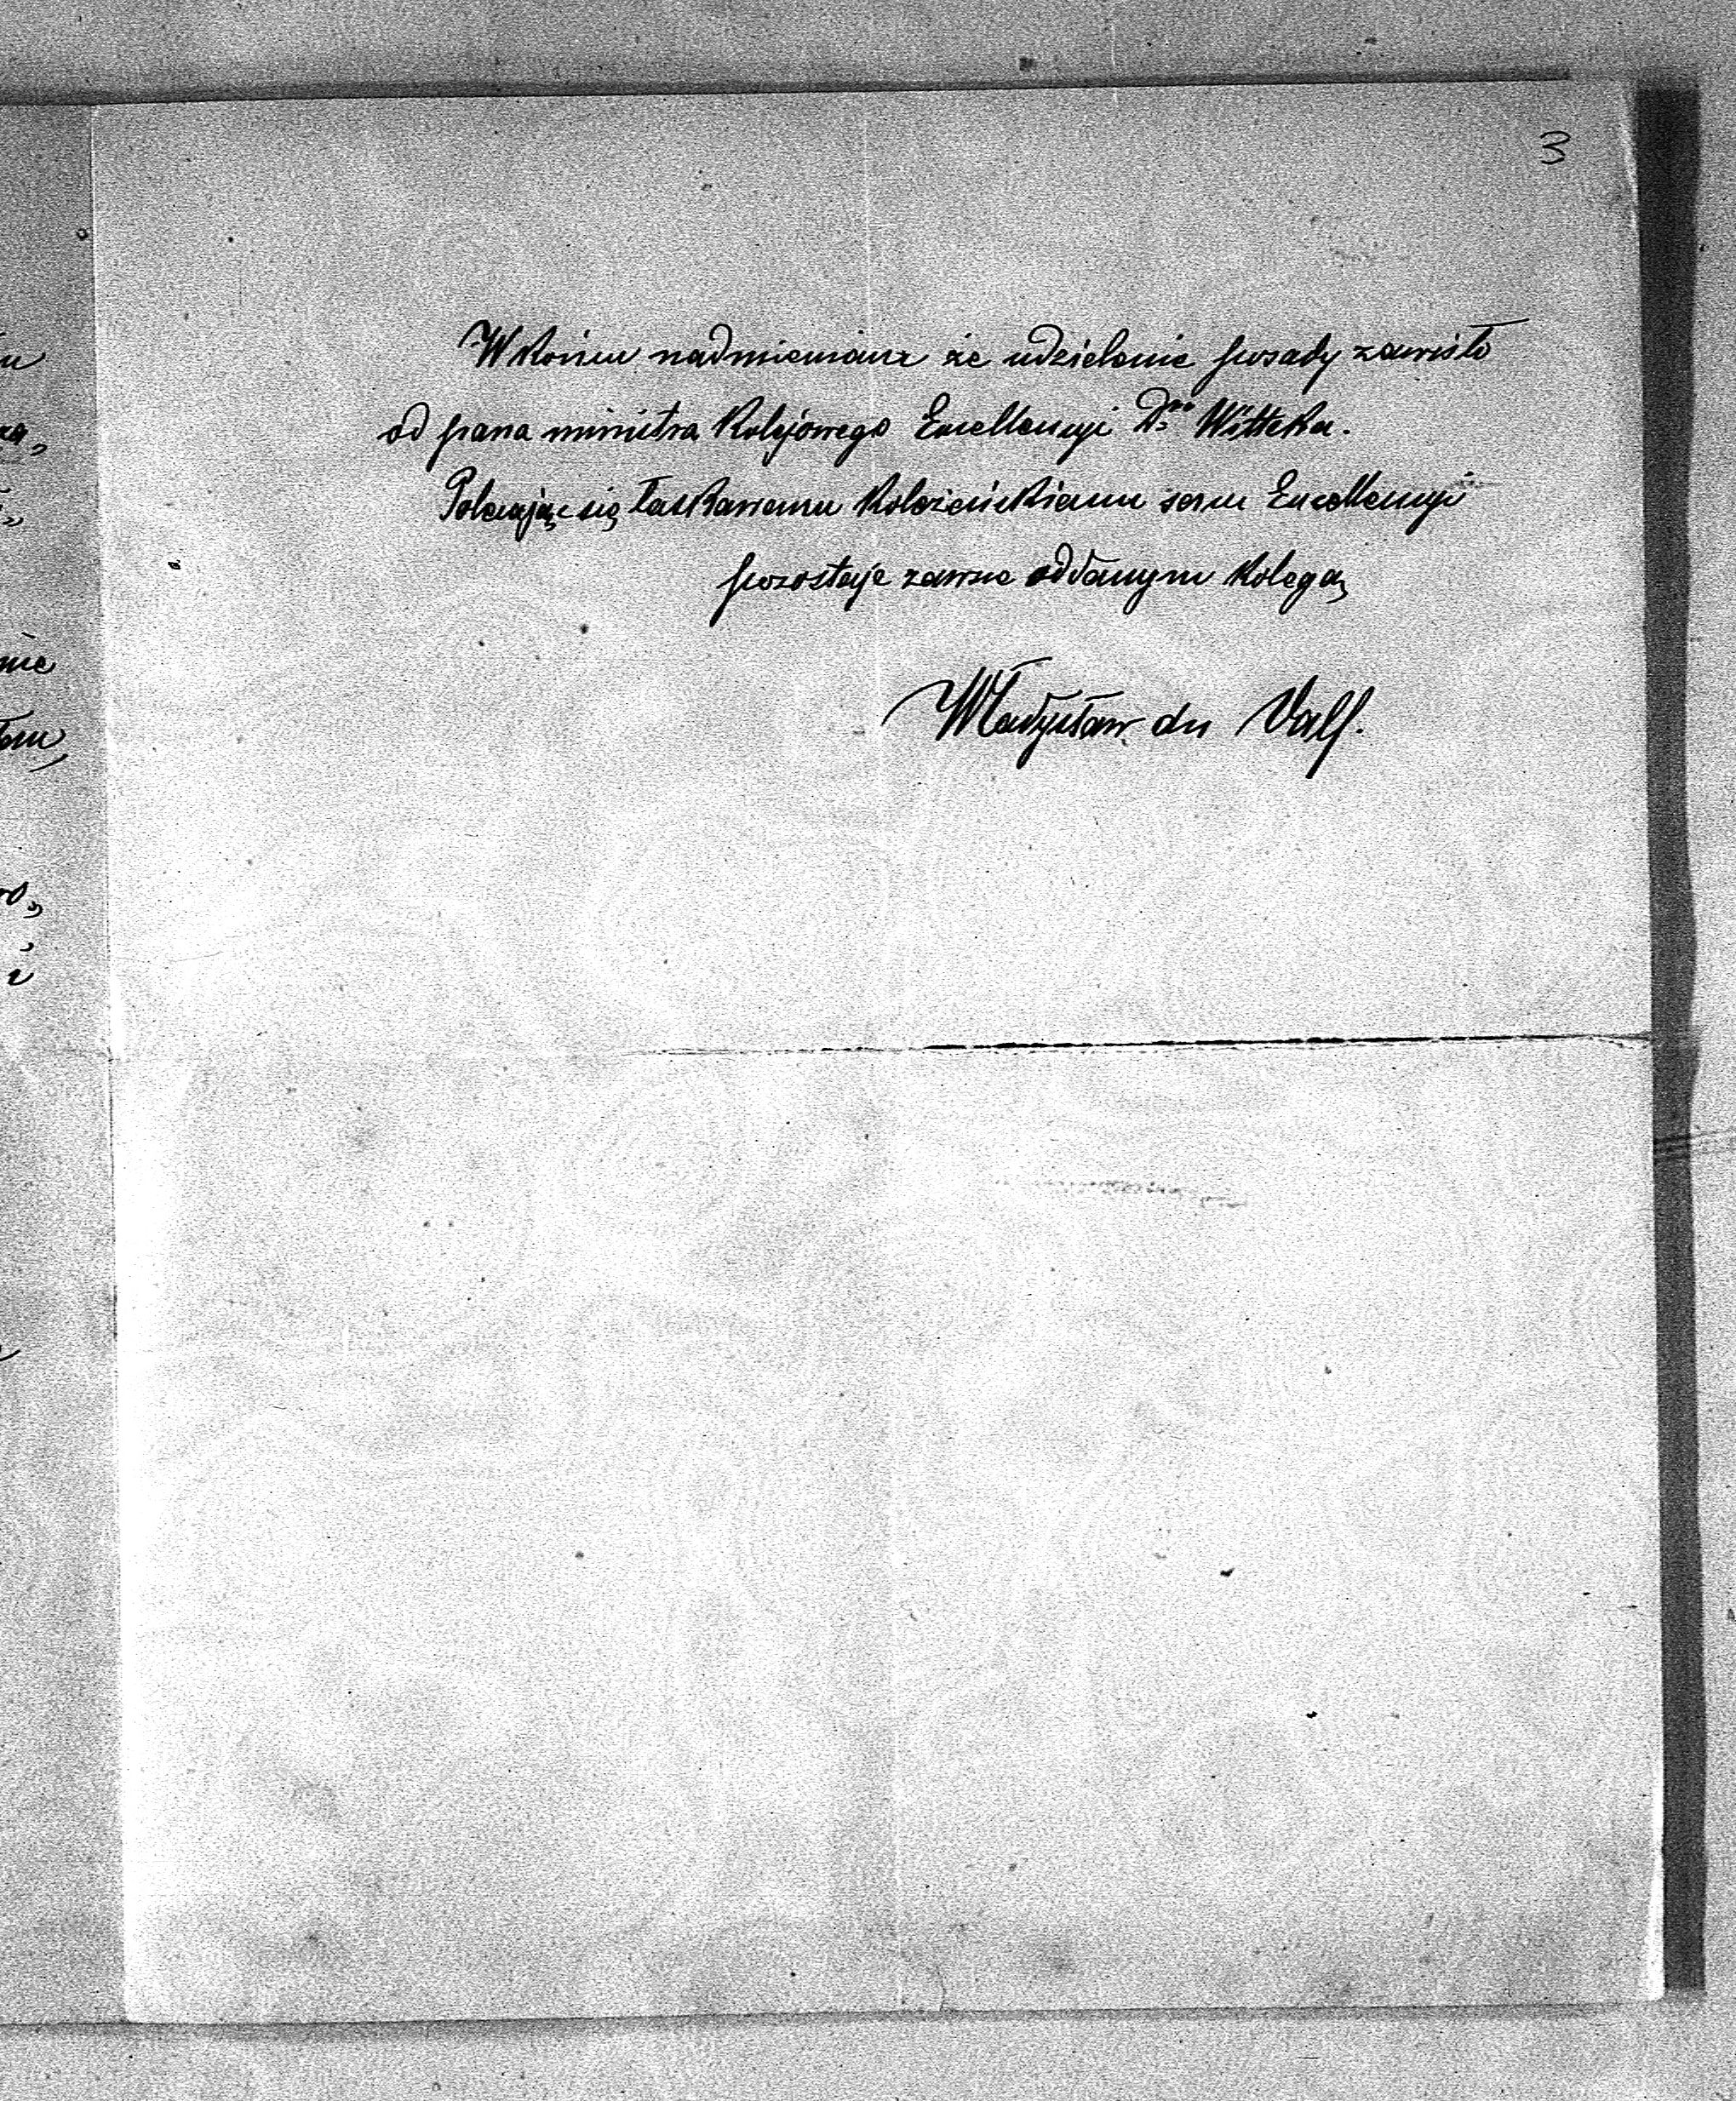 3
W końcu nadmieniam że udzielenie posady zawisło
od pana ministra Kolejowego Excellencyi Dra Witteka.
Polecając się łaskawemu koleżeńskiemu sercu Excellencyi
pozostaję zawsze oddanym kolegą
Władysław du Vall.